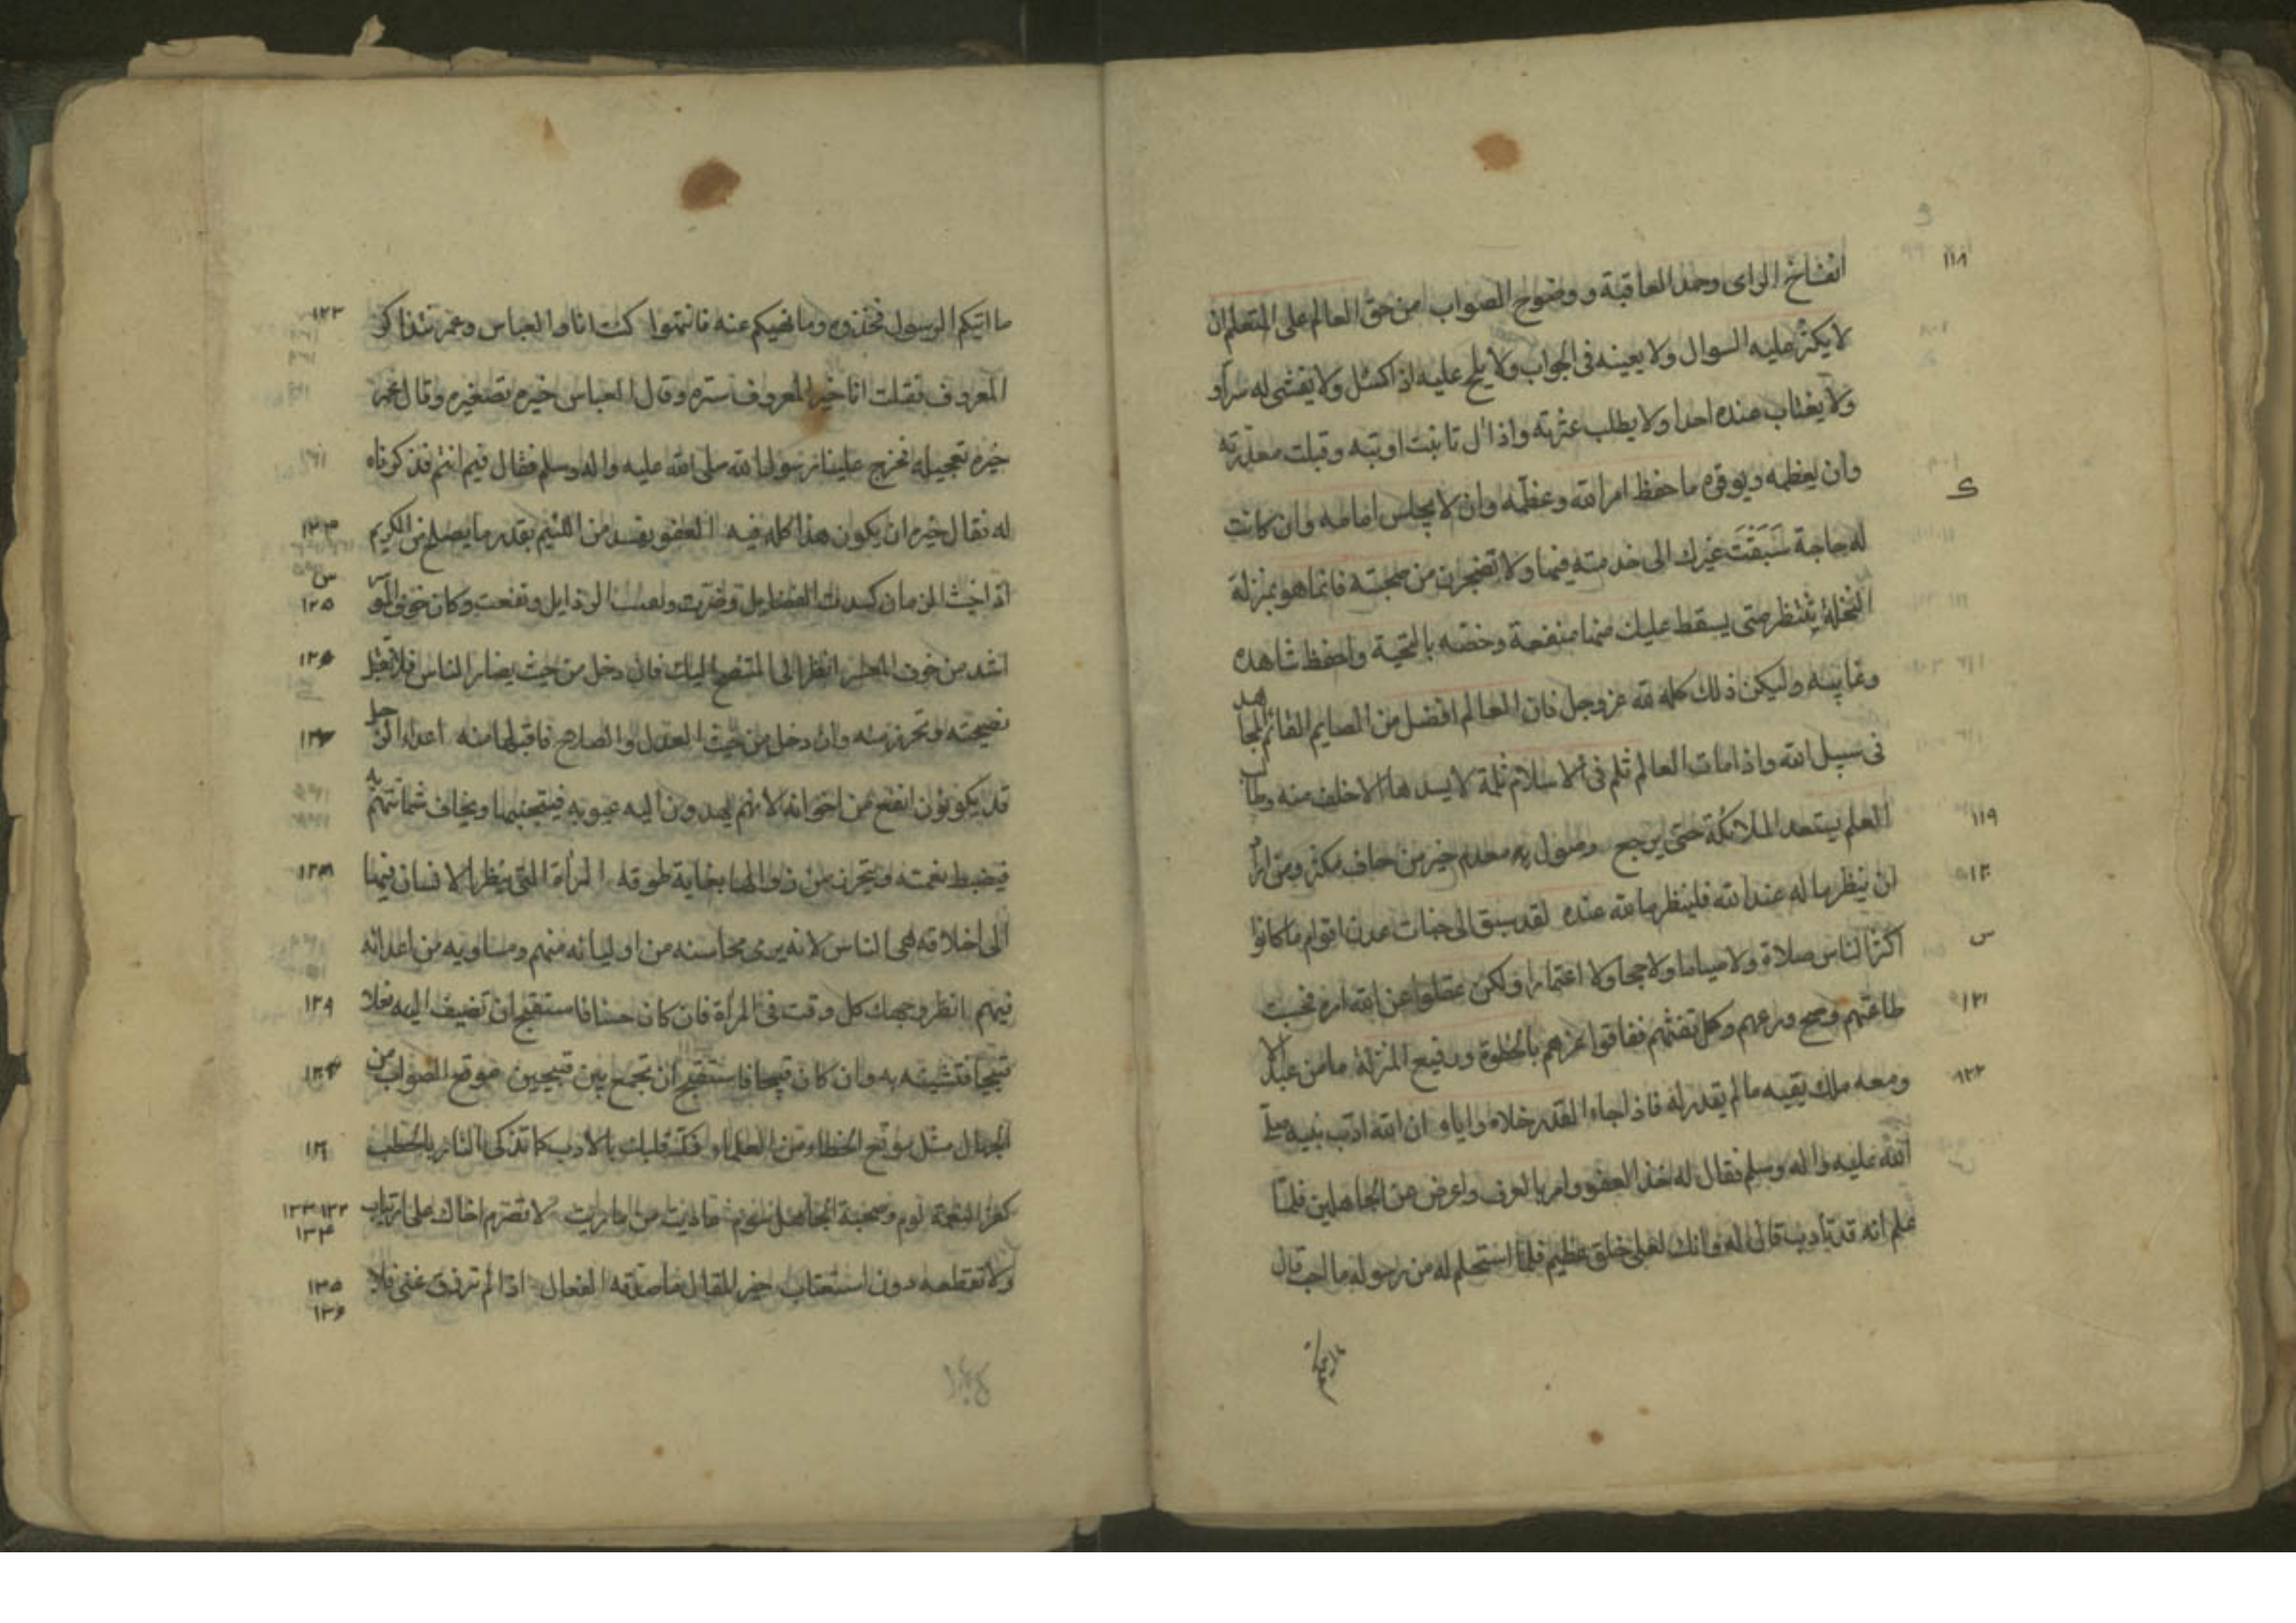 انفساخ الراى وحمد العاقبة و وضوح الصواب من حق العالم على المتعلم ان
١١٨
لا يكثر عليه السوال ولا يعينه فى الجواب ولا يلح عليه اذا كسل ولا يفشى له سرا و
ولا يغتاب عنده احدا ولا يطلب عثرته واذا زل تانيت اوبته وقبلت معذرته
وان يعظمه ويوقره ما حفظ امر الله وعظمه وان لا يجلس امامه وان كانت
له حاجة سَبَقْتَ غيرك الى خدمته فيها ولا تضجرن من صحبته فانما هو بمنزلة
النخلة ينتظر متى يسقط عليك منها منفعة وخصه بالتحية واحفظ شاهده
وغايبه وليكن ذلك كله لله عز وجل فان العالم افضل من الصايم القائم المجاهد
فى سبيل الله واذا مات العالم ثلم فى الاسلام ثلمة لا يسدها الا خلف منه وطالب
العلم يستعد الملائكة حتى يرجع وصول معدم خير من جاف مكثر ومن اراد
١١٩
ان ينظر ما له عند الله فلينظر ما لله عنده لقد سبق الى جنات عدن اقوام ما كانوا
١٢٠
اكثر الناس صلاة ولا صياما ولا حجا ولا اعتمارا ولكن عقلوا عن الله امره فحسنت
س
طاعتهم وصح ورعهم وكمل يقينهم ففاقوا غيرهم بالحظوة ورفيع المنزلة ما من عبد الا
١٢١
ومعه ملك يقيه ما لم يقدر له فاذا جاء القدر خلاه واياه ان الله ادب نبيه صلى
١٢٢
الله عليه واله وسلم فقال له خذ العفو وامر بالعرف واعرض عن الجاهلين فلما
علم انه قد تادب قال له وانك لعلى خلق عظيم فلما استحكم له من رسوله ما احب قال
ما اتيكم الرسول فخذوه وما نهيكم عنه فانتهوا كنت انا والعباس وعمر نتذاكر
١٢٣
المعروف فقلت انا خير المعروف ستره وقال العباس خيره تصغيره وقال عمر
خيره تعجيله فخرج علينا رسول الله صلى الله عليه واله وسلم فقال فيم انتم فذكرناه
له فقال خيره ان يكون هذا كله فيه العفو يفسد من اللئيم بقدر ما يصلح من الكريم
١٢٤
اذا خبث الزمان كسدت الفضايل وضرت ونفقت الرذايل ونفعت وكان خوف الموسر
س
١٢٥
اشد من خوف المعسر انظر الى المتنصح اليك فان دخل من حيث يضار الناس فلا تقبل
نصيحته وتحرز منه وان دخل من حيث العدل والصلاح فاقبلها منه اعداء الرجل
قد يكونون انفع من اخوانه لانهم يهدون اليه عيوبه فيتجنبها ويخاف شماتتهم به
فيضبط نعمته ويتحرز من زوالها بغاية طوقه المرأة التى ينظر الانسان فيها
١٢٨
الى اخلاقه هى الناس لانه يرى محاسنه من اوليائه منهم ومساويه من اعدائه
فيهم انظر وجهك كل وقت فى المرأة فان كان حسنا فاستقبح ان تضيف اليه فعلا
١٢٩
قبيحا فتشينه به وان كان قبيحا فاستقبح ان تجمع بين قبيحين موقع الصواب من
الجهال مثل موقع الخطاء من العلماء ذك قلبك بالادب كما تذكى النار بالحطب
كفر النعمة لوم وصحبة الجاهل شوم عاديت من ماريت لا تصرم اخاك على ارتياب
١٣٢ ١٣٣
١٣٤
ولا تقطعه دون استعتاب خير المقال ما صدقه الفعال اذا لم ترزق غنى فلا
١٣٥
١٣٦